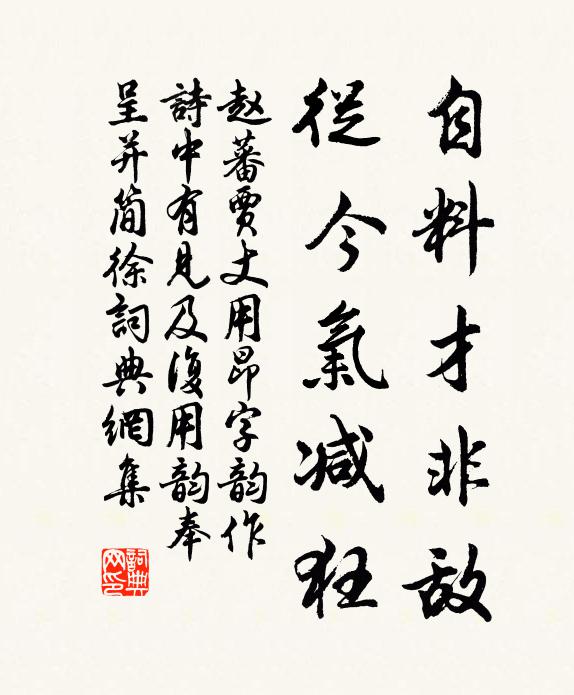 自料才非敌
從今氣减狂
赵蕃賈丈用昂字韵作
詩中有見及復用韵奉
呈并简徐詞典網集
詞典网印